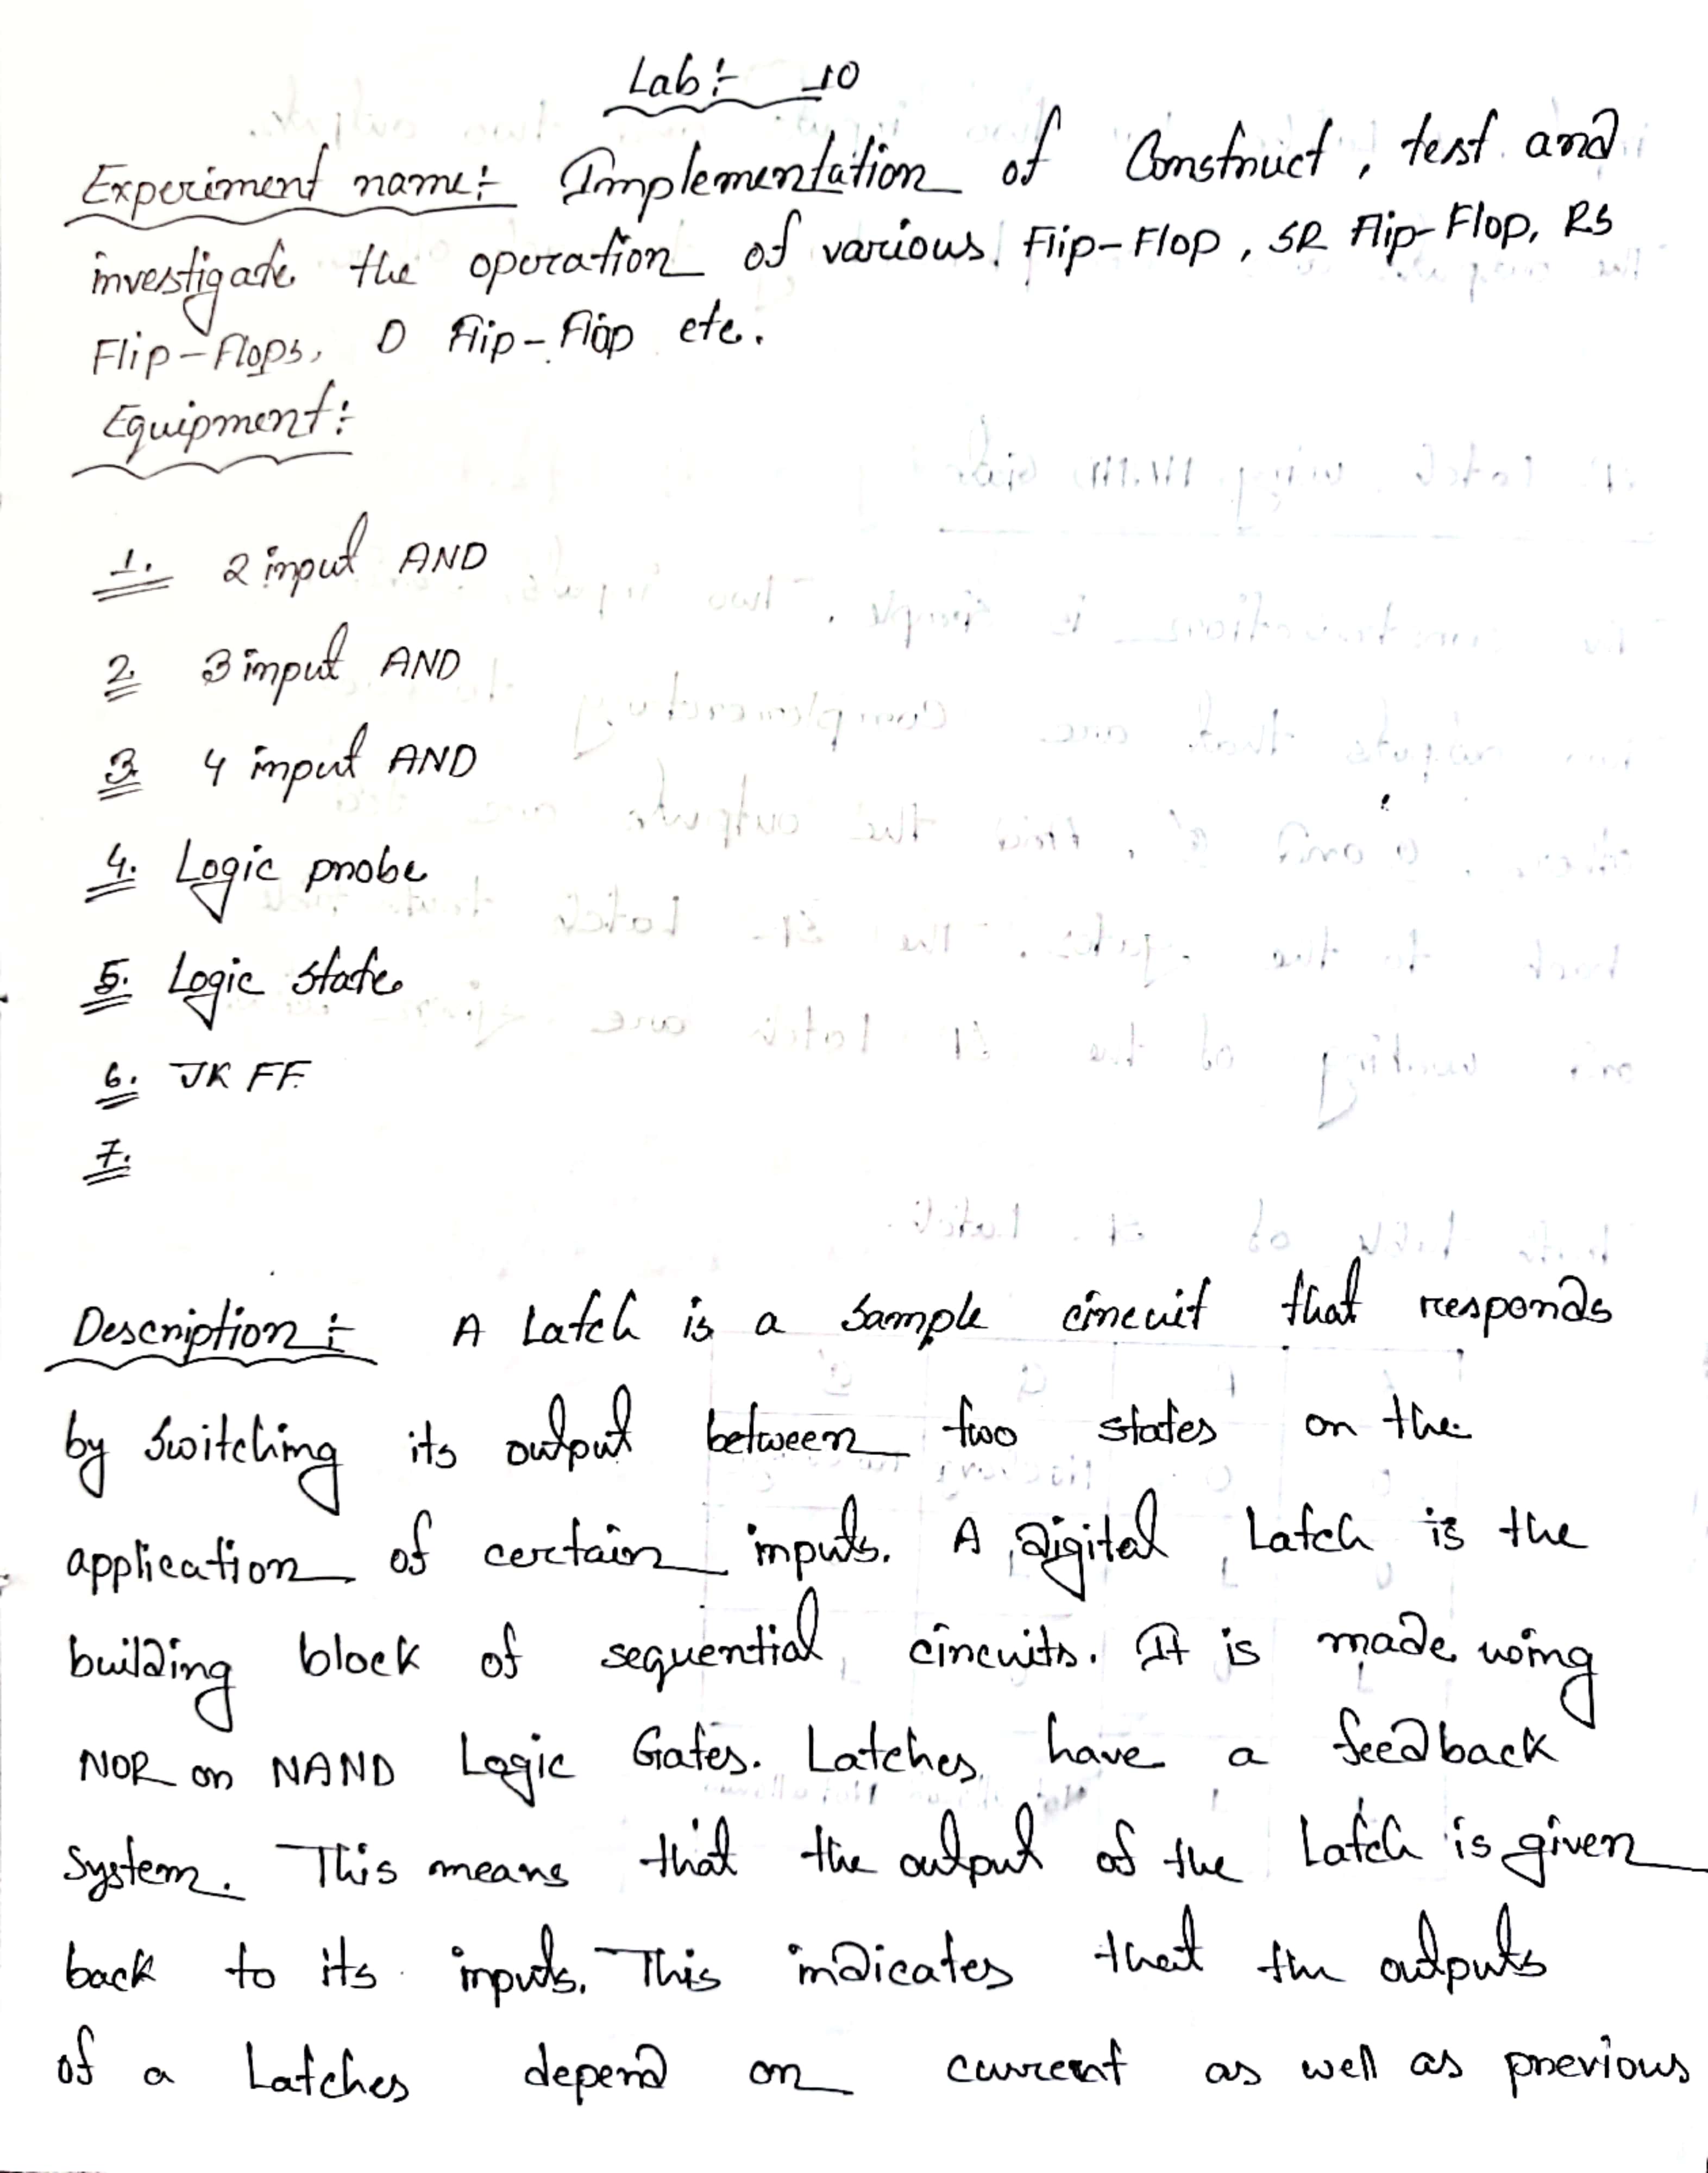 Lab:- 10
Experiment name:- Implementation of Construct, test and
investigate the operation of various Flip-Flop, SR Flip-Flop, RS
Flip-Flops, D Flip-Flop etc.
Equipment:-
1. 2 input AND
2. 3 input AND
3. 4 input AND
4. Logic probe
5. Logic state
6. JK FF.
7.
Description:- A Latch is a sample circuit that responds
by switching its output between two states on the
application of certain inputs. A Digital Latch is the
building block of sequential circuits. It is made using
NOR or NAND Logic Gates. Latches have a feedback
system. This means that the output of the Latch is given
back to its inputs. This indicates that the outputs
of a Latches depend on current as well as previous